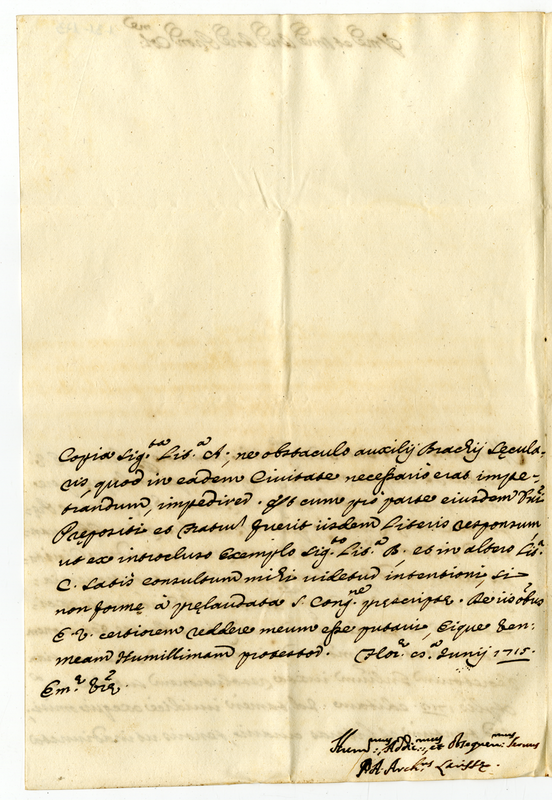 Copia sig.ta Lit.a A, ne obstaculo auxilij Brachij Sęcula-
ris, quod in eadem Civitate necessario erat impe-
trandum, impediret. At cum pro parte eiusdem
Prępositi et fuerit iisdem Literis responsum
ut ex introcluso Exemplo sig.to Lit.a B. et in altero Lit.a
C. satis consultum mihi videtur intentioni, si
non formę à pręlaudata S. Cong.ne pręscriptę. De iis
E. V. certiorem reddere meum esse putavi, Eique
meam Humillimam protestor. Flor.
Junij 1715.
Em.
Hum.mus, Addic.mus, et Obsequen.mus Servus
Arch.